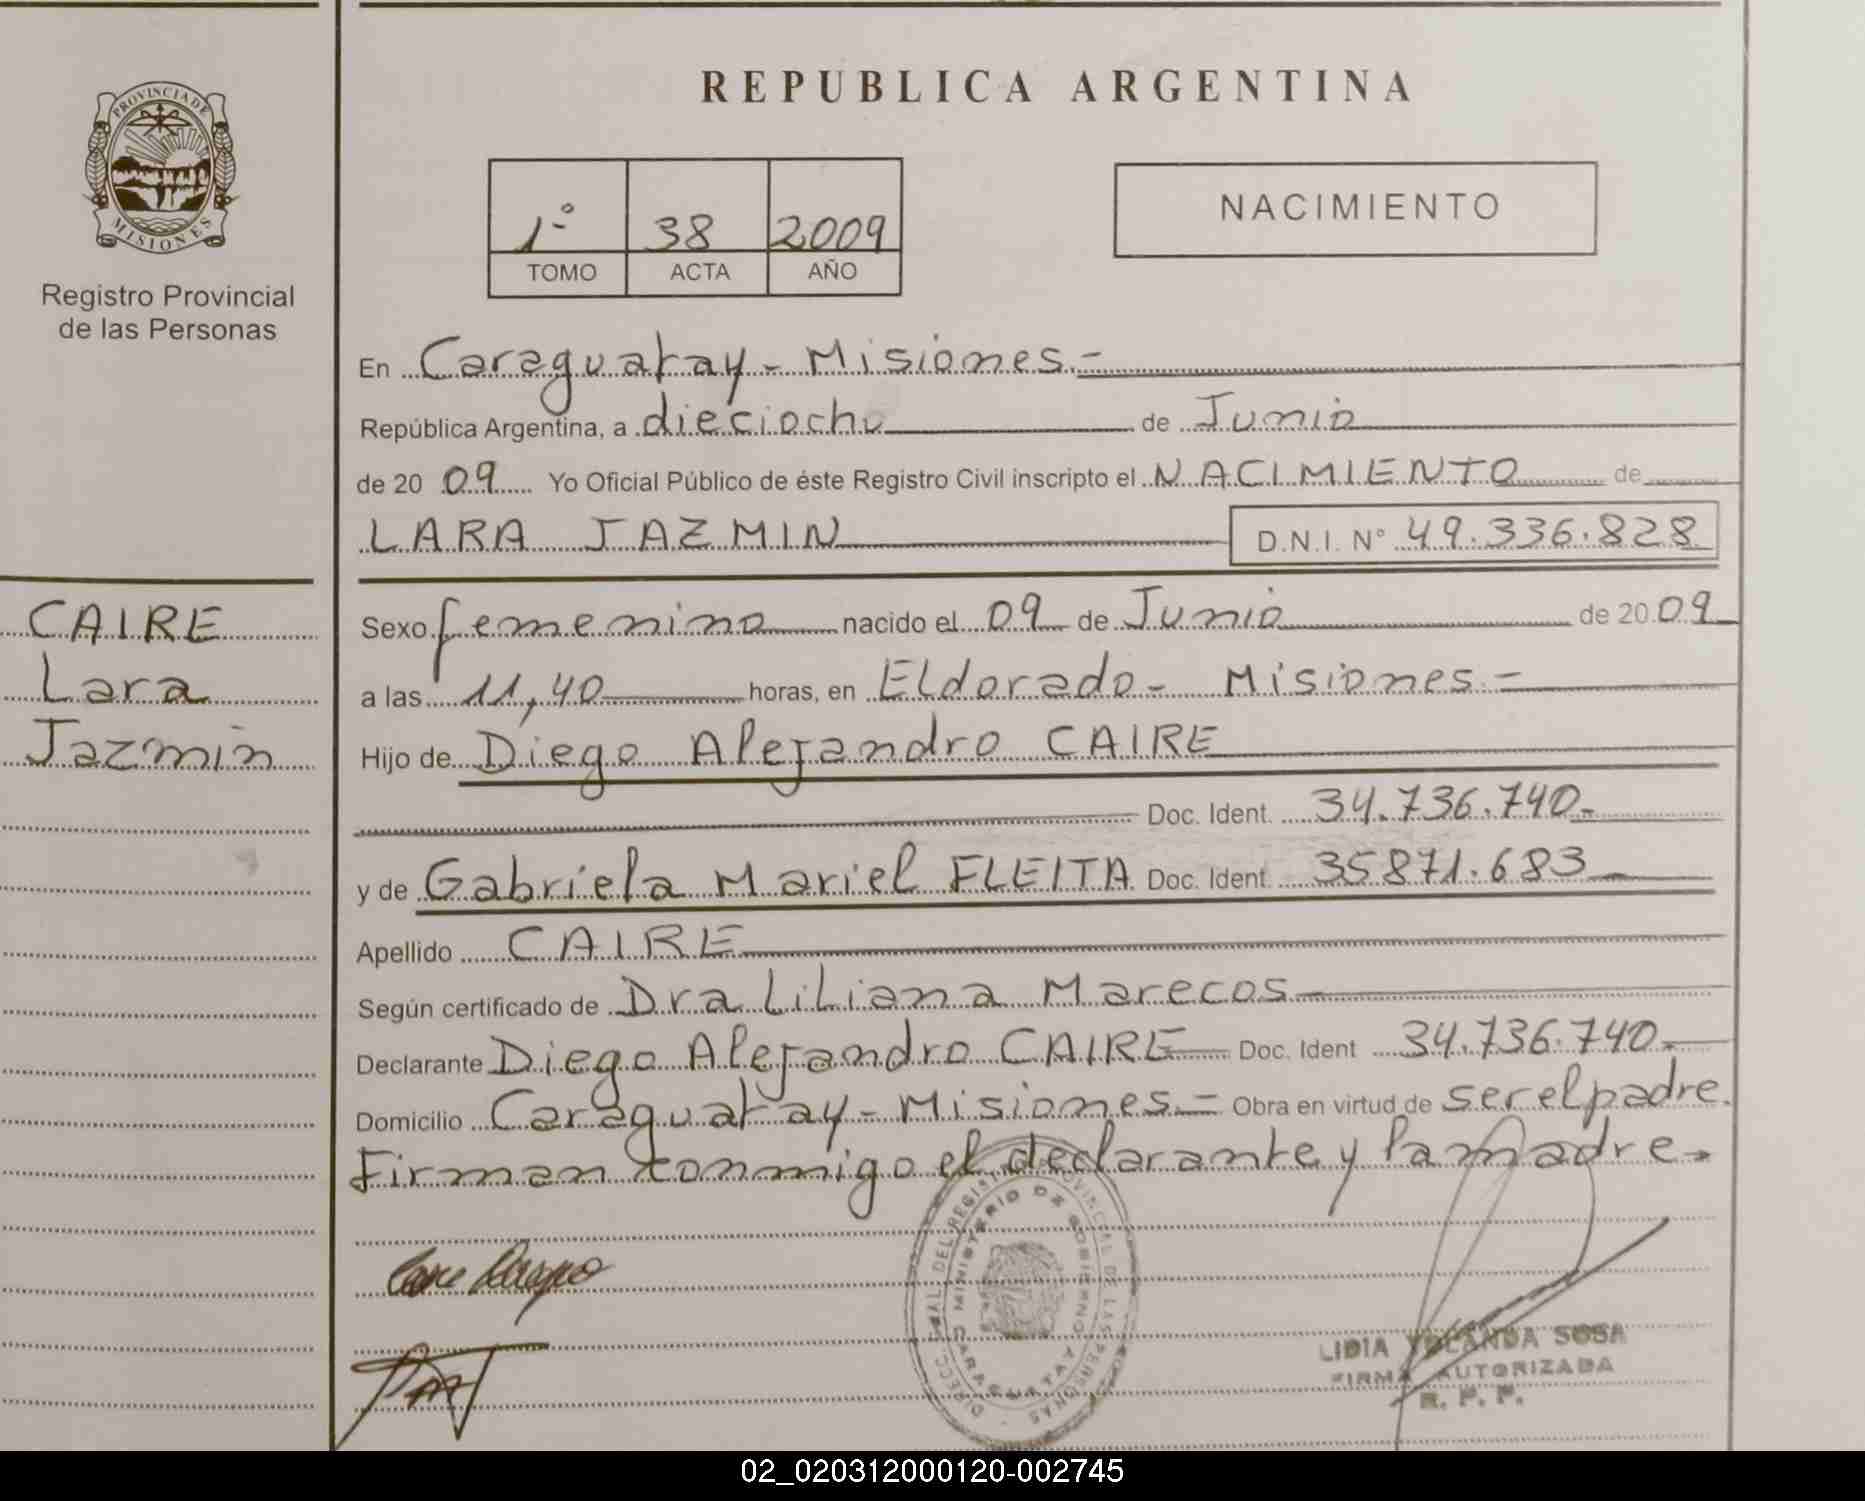 PROVINCIA DE
MISIONES
Registro Provincial
de las Personas
CAIRE
Lara
Jazmin
REPUBLICA ARGENTINA
1º 38 2009
TOMO ACTA AÑO
NACIMIENTO
En Caraguatay - Misiones.-
República Argentina, a dieciocho de Junio
de 20 09 Yo Oficial Público de éste Registro Civil inscripto el NACIMIENTO de
LARA JAZMIN D.N.I. Nº 49.336.828
Sexo femenino nacido el 09 de Junio de 20 09
a las 11,40 horas, en Eldorado - Misiones.-
Hijo de Diego Alejandro CAIRE
Doc. Ident. 34.736.740.-
y de Gabriela Mariel FLEITA Doc. Ident. 35871.683
Apellido CAIRE
Según certificado de Dra Liliana Marecos
Declarante Diego Alejandro CAIRE Doc. Ident 34.736.740.-
Domicilio Caraguatay - Misiones.- Obra en virtud de ser el padre.
Firman conmigo el declarante y la madre.
DIRECC. GRAL. DEL REGISTRO PROVINCIAL DE LAS PERSONAS
MINISTERIO DE GOBIERNO
CARAGUATAY
LIDIA YOLANDA SOSA
FIRMA AUTORIZADA
R. P. P.
02_020312000120-002745